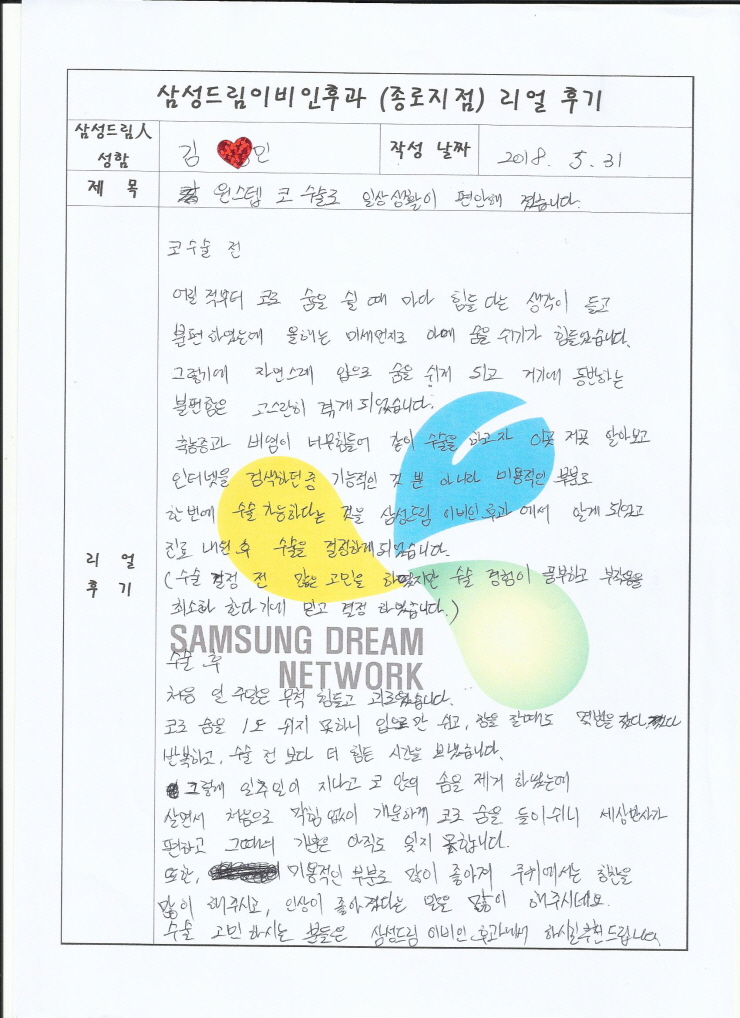 삼성드림이비인후과 (종로지점) 리얼 후기
삼성드림人 성함
김 민
작성 날짜
2018. 5. 31
제 목
원스텝 코 수술로 일상생활이 편안해 졌습니다.
리 얼
후 기
코수술 전
어릴 적부터 코로 숨을 쉴 때 마다 힘들 다는 생각이 들고
불편 하였는데 올해는 미세먼지로 아예 숨을 쉬기가 힘들었습니다.
그렇기에 자연스레 입으로 숨을 쉬게 되고 거기에 동반하는
불편함은 고스란히 겪게 되었습니다.
축농증과 비염이 너무힘들어 같이 수술을 하고자 이곳 저곳 알아보고
인터넷을 검색하던 중 기능적인 것 뿐 아니라 미용적인 부분도
한 번에 수술 가능하다는 것을 삼성드림 이비인후과 에서 알게 되었고
진료 내원 후 수술을 결정하게 되었습니다.
(수술 결정 전 많은 고민을 하였지만 수술 경험이 풍부하고 부작용을
최소화 한다 기에 믿고 결정 하였습니다.)
SAMSUNG DREAM
NETWORK
수술 후
처음 일 주일은 무척 힘들고 괴로웠습니다.
코로 숨을 1도 쉬지 못하니 입으로만 쉬고, 잠을 잘때도 몇번을 깼다
반복하고, 수술 전 보다 더 힘든 시간을 보냈습니다.
그렇게 일주일이 지나고 코 안의 솜을 제거 하였는데
살면서 처음으로 막힘 없이 개운하게 코로 숨을 들이쉬니 세상만사가
편하고 그때의 기분은 아직도 잊지 못합니다.
또한, 미용적인 부분도 많이 좋아져 주위에서는 칭찬을
많이 해주시고, 인상이 좋아졌다는 말은 많이 해주시네요.
수술 고민 하시는 분들은 삼성드림 이비인후과에서 하시길 추천드립니다.